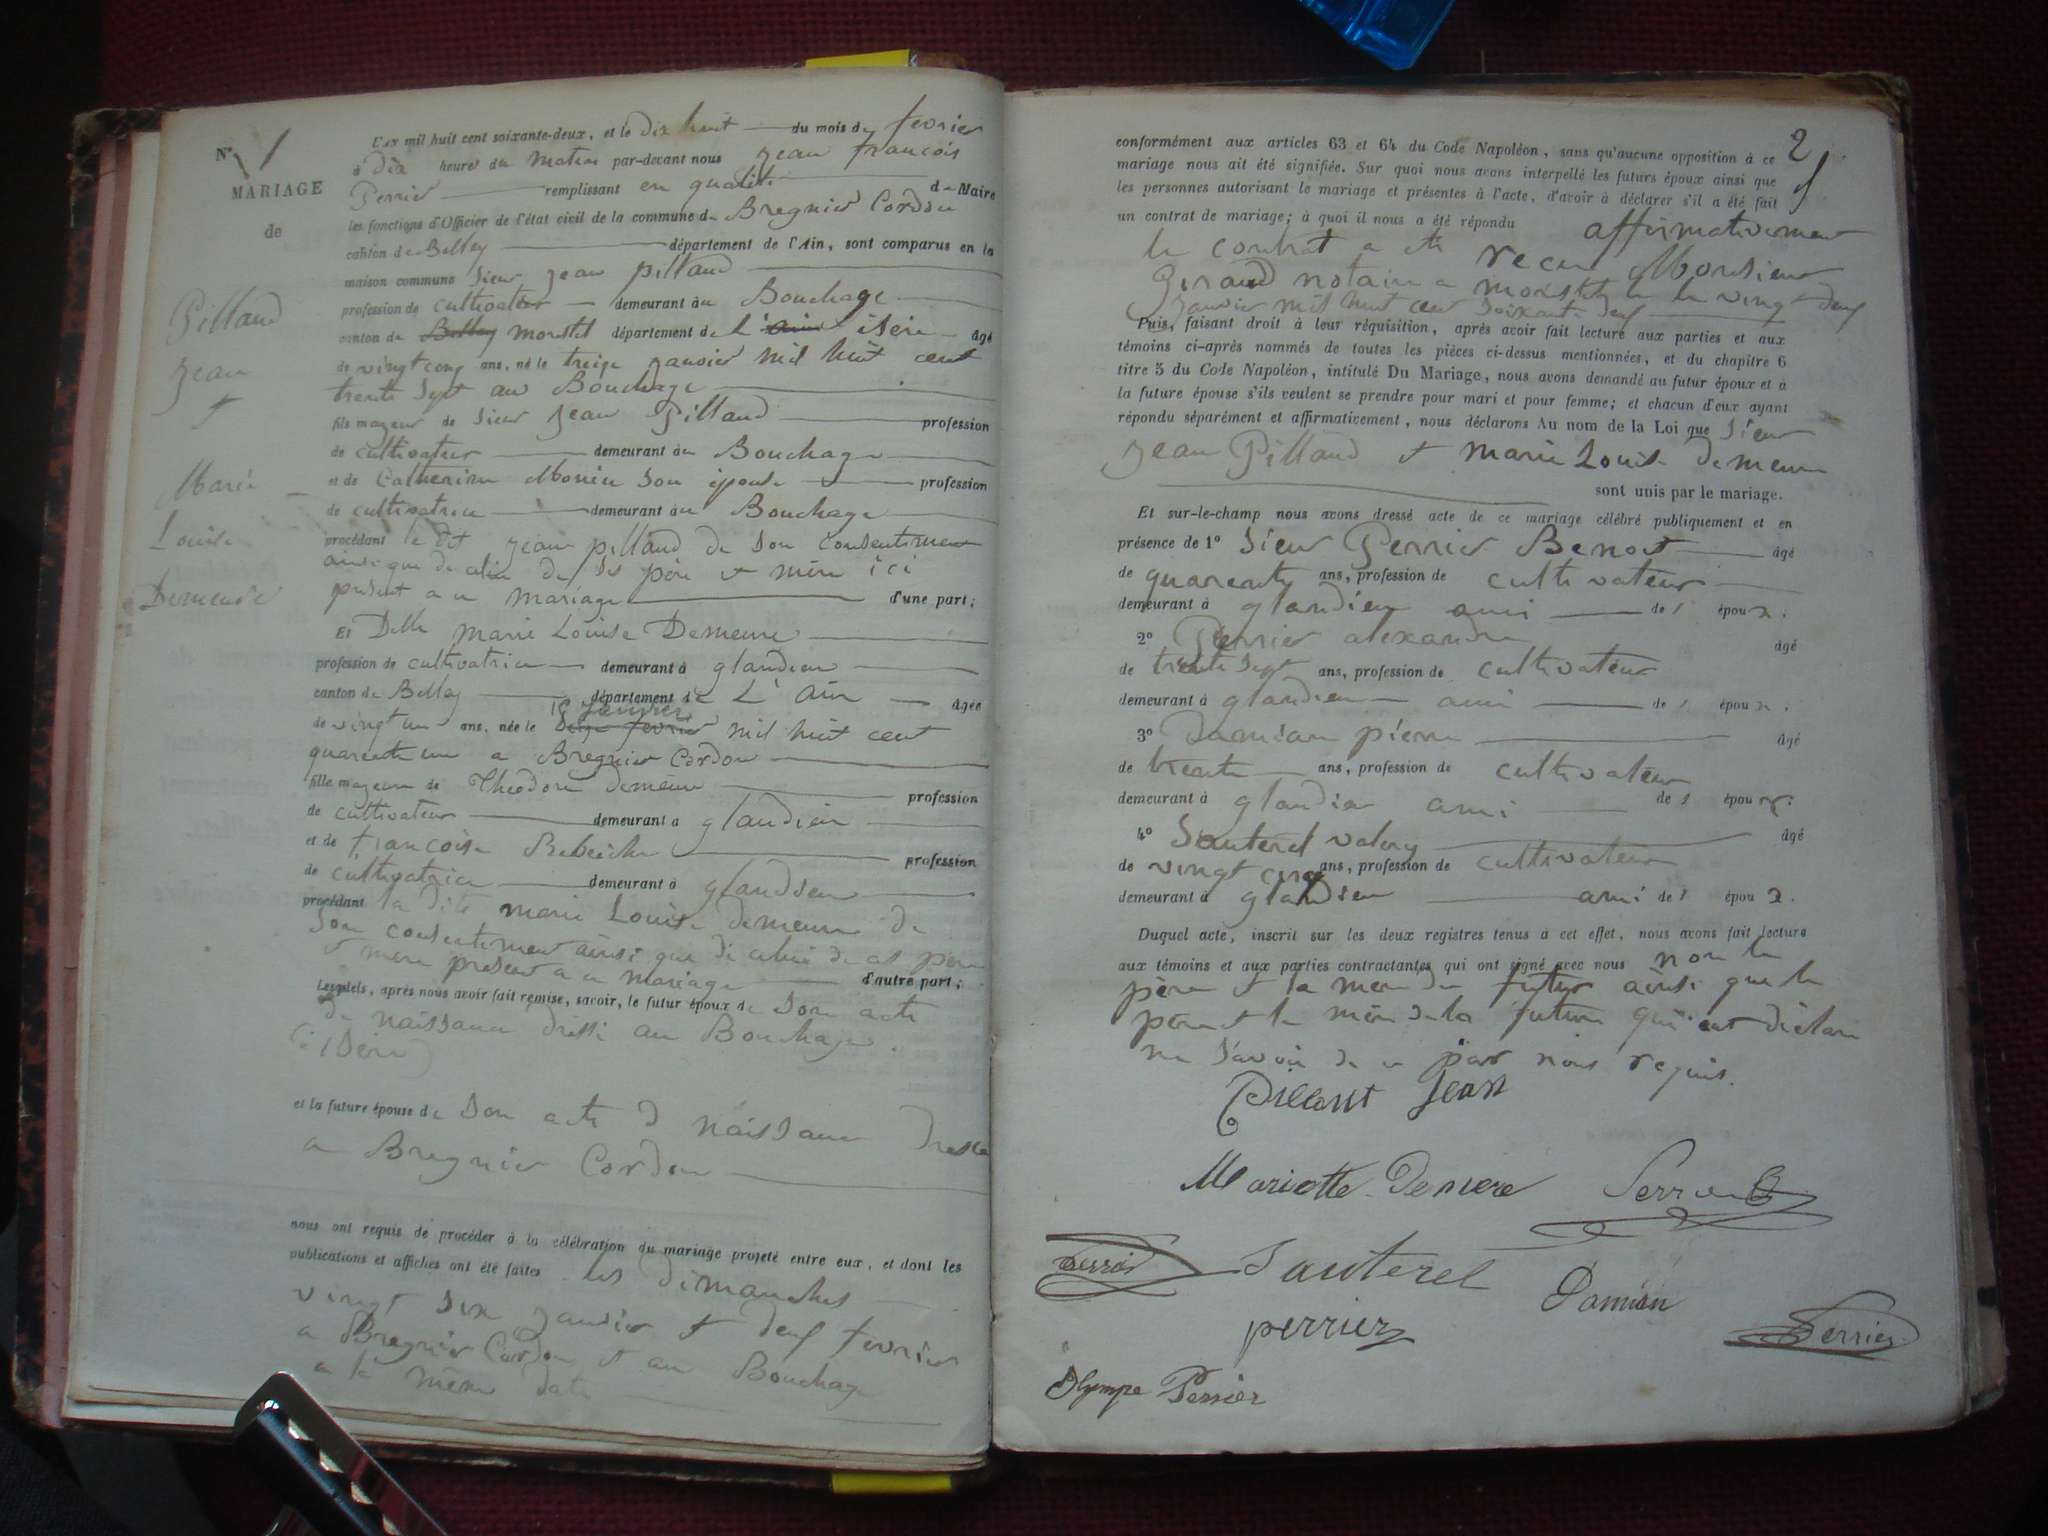 N° 1
MARIAGE
de
Pilland
Jean
et
Marie
Louise
Demeure
L'AN mil huit cent soixante-deux, et le dix huit du mois de fevrier
à dix heures du matin par-devant nous Jean francois
Perrier remplissant en qualité de Maire
les fonctions d'Officier de l'état civil de la commune de Bregnier Cordon
canton de Belley département de l'Ain, sont comparus en la
maison commune Sieur Jean pilland
profession de cultivateur demeurant au Bouchage
canton de Belley morestel département de L'ain isère âgé
de vingt cinq ans, né le treize janvier mil huit cent
trente sept au Bouchage
fils mageur de Sieur Jean Pilland profession
de cultivateur demeurant au Bouchage
et de Catherine son épouse profession
de cultivatrice demeurant au Bouchage
procédant le dit Jean pilland de son consentement
ainsi que de celui de ses père et mère ici
présent a ce mariage d'une part;
Et Delle marie Louise Demeure
profession de cultivatrice demeurant à glandieu
canton de Belley département de L'ain âgée
de vingt un ans, née le fevrier 18 janvier mil huit cent
quarente un a Bregnier Cordon
fille mageure de Théodore demeure profession
de cultivateur demeurant a glandieu
et de françoise profession
de cultivatrice demeurant à glandieu
procédant la dite marie Louise demeure de
son consentement ainsi que de celui de ces père
et mère présent a ce mariage d'autre part;
Lesquels, après nous avoir fait remise, savoir, le futur époux de son acte
de naissance dressé au Bouchage
(isère)
et la future épouse de son acte de naissance dressé
a Bregnier Cordon
nous ont requis de procéder à la célébration du mariage projeté entre eux, et dont les
publications et affiches ont été faites les dimanches
vingt six janvier et deux fevrier
a Bregnier Cordon et au Bouchage
a la même date
2
conformément aux articles 63 et 64 du Code Napoléon, sans qu'aucune opposition à ce
mariage nous ait été signifiée. Sur quoi nous avons interpellé les futurs époux ainsi que
les personnes autorisant le mariage et présentes à l'acte, d'avoir à déclarer s'il a été fait
un contrat de mariage; à quoi il nous a été répondu affirmativement
le contrat a été recu Monsieur
Giraud notaire a morestel le vingt deux
janvier mil huit cent soixante deux
Puis, faisant droit à leur réquisition, après avoir fait lecture aux parties et aux
témoins ci-après nommés de toutes les pièces ci-dessus mentionnées, et du chapitre 6
titre 5 du Code Napoléon, intitulé Du Mariage, nous avons demandé au futur époux et à
la future épouse s'ils veulent se prendre pour mari et pour femme; et chacun d'eux ayant
répondu séparément et affirmativement, nous déclarons Au nom de la Loi que Sieur
Jean Pilland et marie Louise demeure
sont unis par le mariage.
Et sur-le-champ nous avons dressé acte de ce mariage célébré publiquement et en
présence de 1° Sieur Perrier Benoit âgé
de quarente ans, profession de cultivateur
demeurant à glandieu ami de l' époux;
2° Perrier alexandre âgé
de trente sept ans, profession de cultivateur
demeurant à glandieu ami de l' époux;
3° Damian pierre âgé
de trente ans, profession de cultivateur
demeurant à glandieu ami de l' époux;
4° Sauterel valery âgé
de vingt cinq ans, profession de cultivateur
demeurant à glandieu ami de l' époux.
Duquel acte, inscrit sur les deux registres tenus a cet effet, nous avons fait lecture
aux témoins et aux parties contractantes qui ont signé avec nous non le
père et la mère du futur ainsi que le
père et la mère de la future qui ont déclaré
ne savoir de ce par nous requis.
Pillant Jean
Mariette Demere Perrier
Perrier Sauterel Damian
perrier Perrier
Olympe Perrier